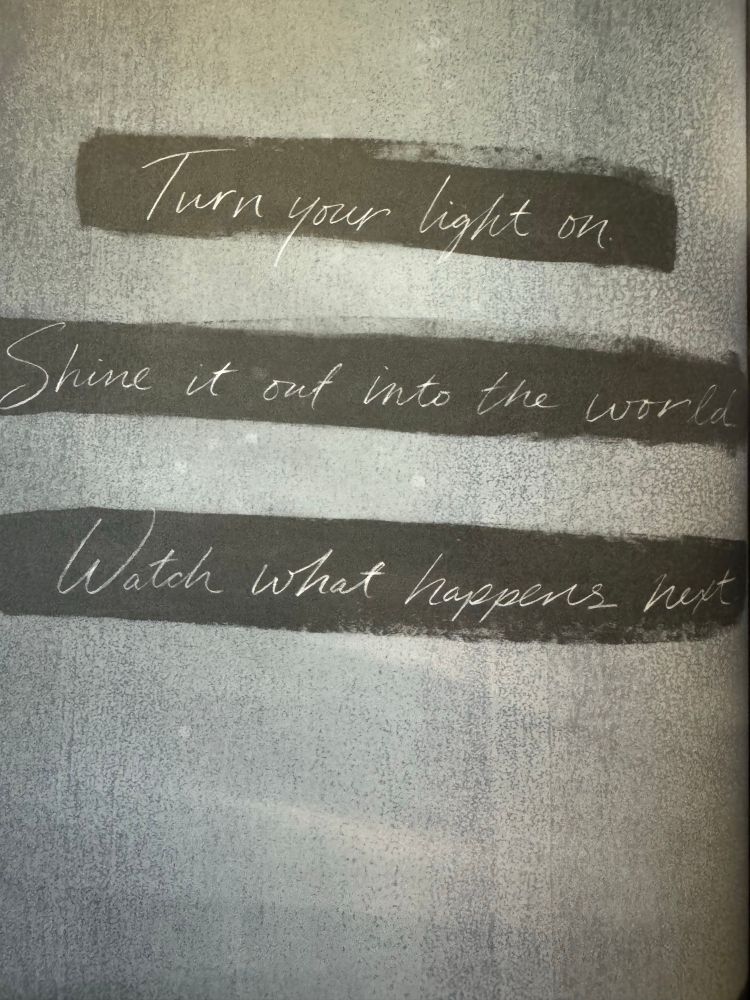 Turn your light on.
Shine it out into the world
Watch what happens next